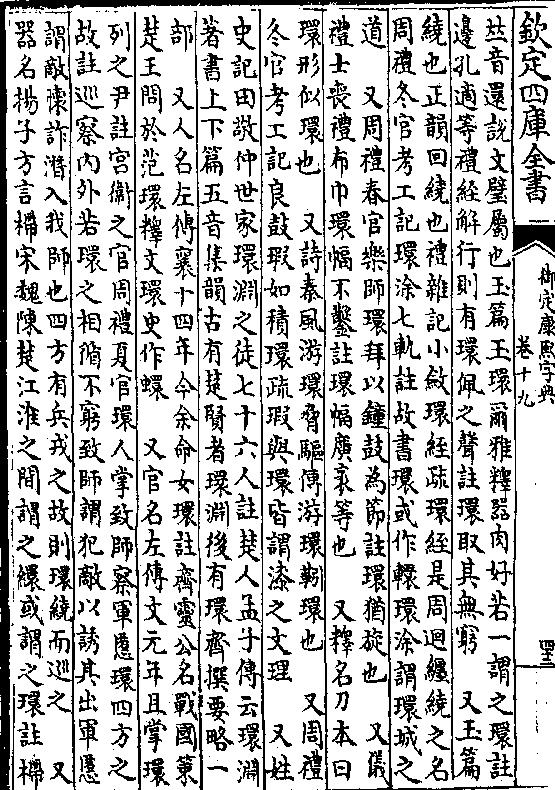 欽定四庫全書
御定康熙字典
卷十九
𠀤音還說文璧屬也玉篇玉環爾雅釋器肉好若一謂之環註
邊孔適等禮經解行則有環佩之聲註環取其無窮　又玉篇
繞也正韻回繞也禮雜記小斂環絰疏環絰是周迴纏繞之名
周禮冬官考工記環涂七軌註故書環或作轘環涂謂環城之
道　又周禮春官樂師環拜以鍾鼓為節註環猶旋也　又儀
禮士喪禮布巾環幅不鑿註環幅廣袤等也　又釋名刀本曰
環形似環也　又詩秦風游環脅驅傳游環靷環也　又周禮
冬官考工記良鼓瑕如積環疏瑕與環皆謂漆之文理　又姓
史記田敬仲世家環淵之徒七十六人註楚人孟子傳云環淵
著書上下篇五音集韻古有楚賢者環淵後有環齊撰要略一
部　又人名左傳襄十四年今余命女環註齊靈公名戰國策
楚王問於范環釋文環史作蠉　又官名左傳文元年且掌環
列之尹註宮衛之官周禮夏官環人掌致師察軍慝環四方之
故註巡察內外若環之相循不窮致師謂犯敵以誘其出軍慝
謂敵懷詐潛入我師也四方有兵戎之故則環繞而巡之　又
器名揚子方言㮯宋魏陳楚江淮之間謂之繯或謂之環註㮯